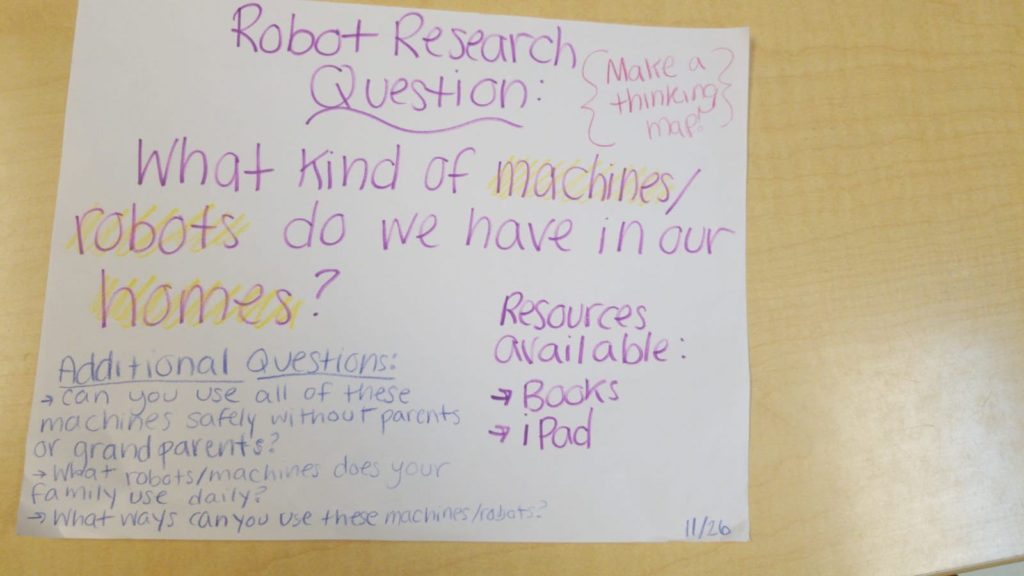 Robot Research
Question:
{Make a
thinking
map!}
What kind of machines/
robots do we have in our
homes?
Resources
available:
→ Books
→ iPad
Additional Questions:
→ can you use all of these
machines safely without parents
or grandparents?
→ What robots/machines does your
family use daily?
→ What ways can you use these machines/robots?
11/26